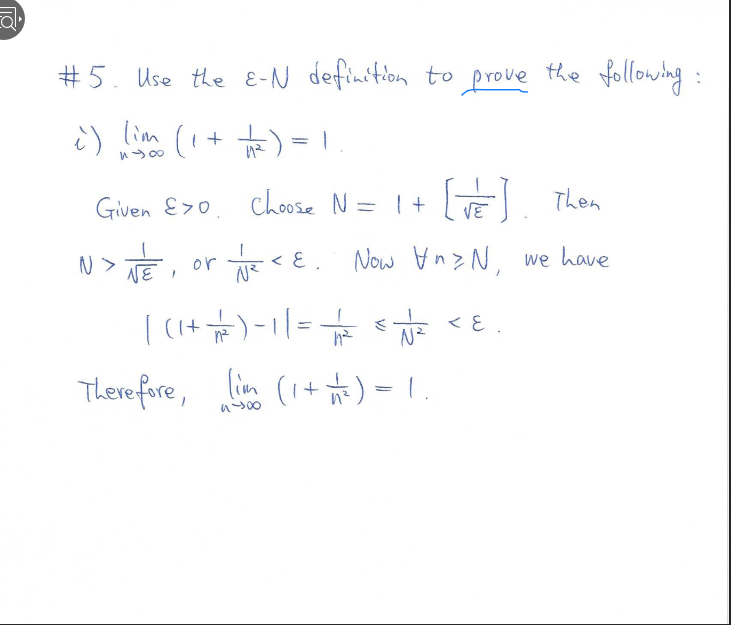 #5. Use the ε-N definition to prove the following:
i) lim_{n→∞} (1 + 1/n²) = 1.
Given ε>0. Choose N = 1 + [1/√ε]. Then
N > 1/√ε, or 1/N² < ε. Now ∀n≥N, we have
|(1+1/n²)-1| = 1/n² ≤ 1/N² < ε.
Therefore, lim_{n→∞} (1+1/n²) = 1.